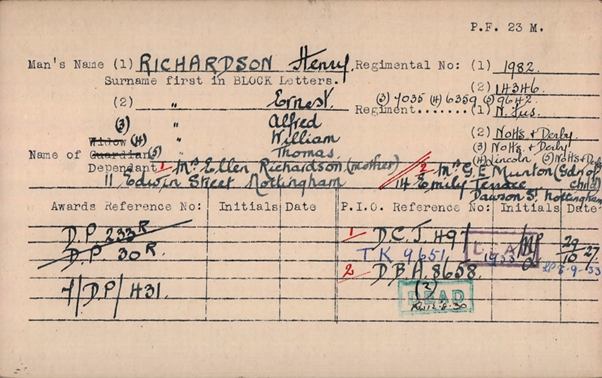 P.F. 23 M.
Man's Name (1) RICHARDSON Henry. Regimental No: (1) 1982.
Surname first in BLOCK Letters. (2) 14346.
(2) " Ernest. (3) 7035 (4) 6359 (5) 9642
Regiment....... (1) N. Fus.
(3) " Alfred
Widow (4) " William (2) Notts & Derby
Name of Guardian (5) " Thomas (3) Notts & Derby
(4) Lincoln (5) Notts & Derby
Dependant 1 Mrs Ellen Richardson (mother) 2 Mrs G. E. Munton (Gdn of child)
11 Edwin Street Nottingham 14 Emily Terrace
Dawson St. Nottingham
Awards Reference No: Initials Date P.I.O. Reference No: Initials Date
D.P. 233 R. 1 D.C.J. 491 29/10 27
D.P. 30 R. T K 9651 1933 8-9-33
2 D.B.A. 8658.
4/D.P/431. (2)
DEAD